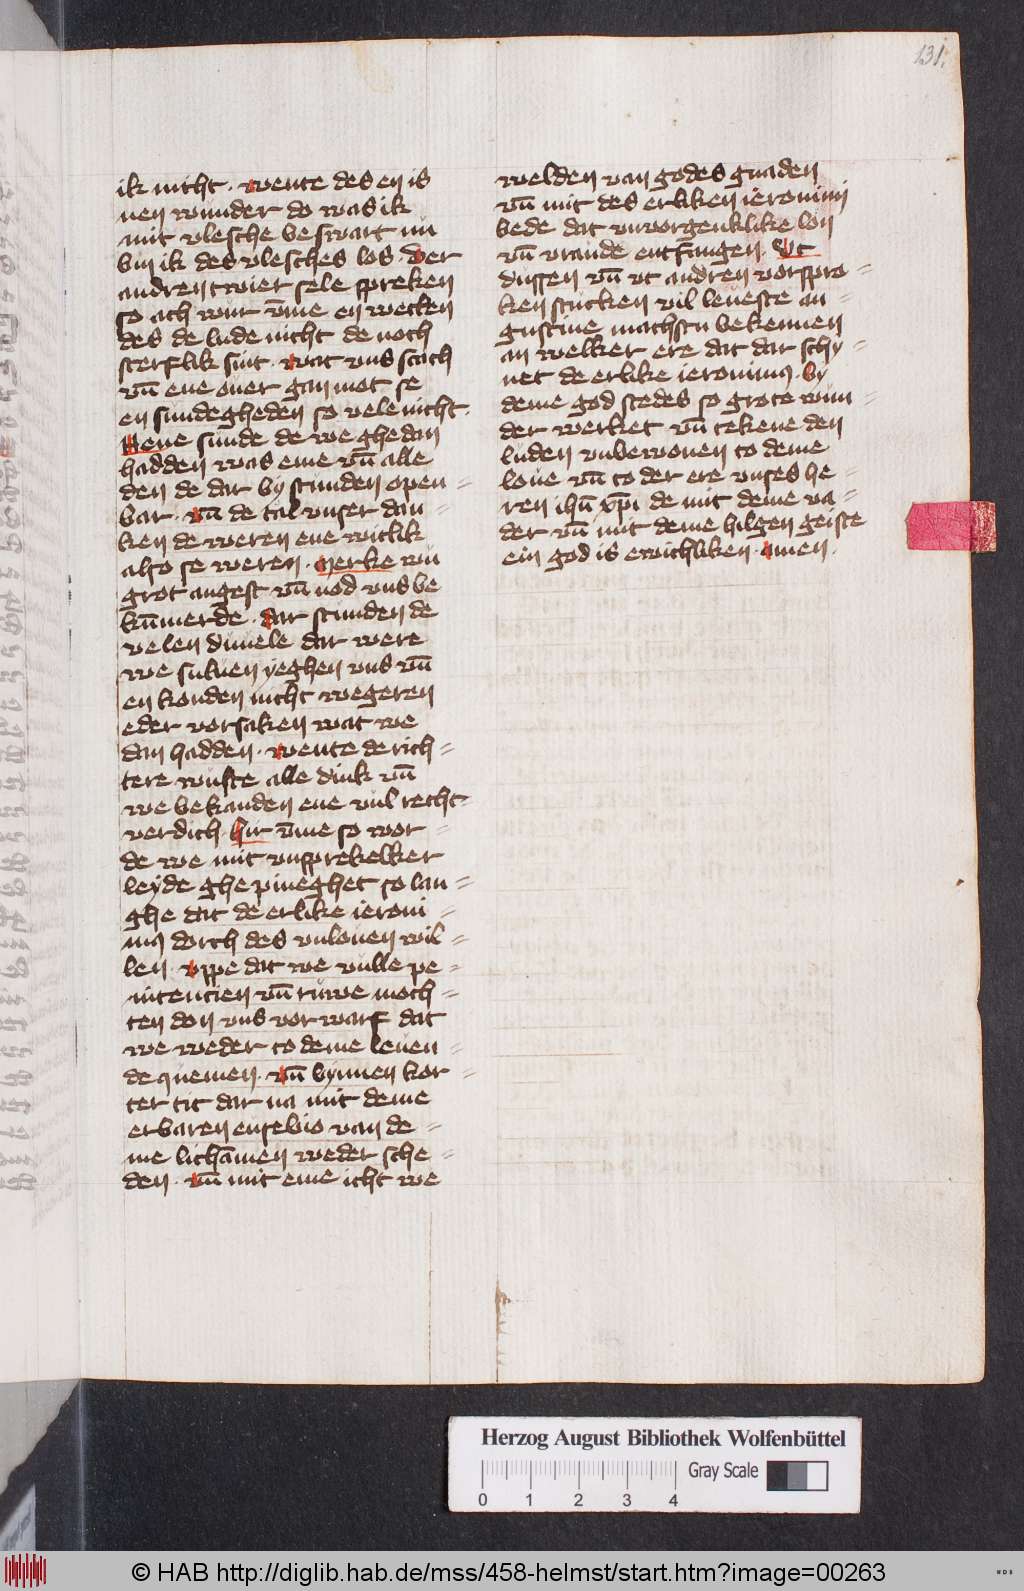 131.
ik nicht. wente des en is
nen wunder do was ik
mit vlesche beswart nu
bin ik des vlesches los. Der
andren twier sele spreken
so ach wur v̄me en wecken
des de lude nicht de noch
sterflik sint. wat vns scach
vn̄ eue ouer gan mot se
en sundegheden so vele nicht.
Nene sunde de we ghedan
hadden was eme vn̄ alle
den de dar by stunden open=
bar. vn̄ de tal vnser dan=
ken de weren eue witlik
also se weren. Merke wu
grot angest vn̄ nod vns be
kūmerde. dar stunden de
velen duuele dar were
we suluen yeghen vns vn̄
en konden nicht wegeren
eder vorsaken wat we
dan hadden. wente de rich=
tere wuste alle dink vn̄
we bekanden ene vul recht.
verdich. Hir v̄me so wor=
de we mit vnsprekelker
leyde ghe pineghet so lan=
ghe dat de erlike ieroni=
mꝯ dorch des vnlouen wil=
len. vppe dat we vulle pe=
nitencien vn̄ ruwe moch=
ten don vns vorwarf dat
we weder to deme leuen=
de quemen. vn̄ bynnen kor=
ter tit dar na mit deme
erbaren eusebio van de=
me lichāmen weder sche=
den. vn̄ mit eme icht we
welden van godes gnaden
vn̄ mit des erliken ieronimi
bede dat vnvorgenklike lon
vn̄ vraude entfangen. Vt
dussen vn̄ vt andren vorspro=
ken stucken vil leueste au=
gustine machstu bekennen
an welker ere dat dar schy=
net de erlike ieronimꝯ. by
deme god stedes so grote wun=
der werket vn̄ tekene den
luden vnbewonen to deme
loue vn̄ to der ere vnses he=
ren ihū xp̄i de mit deme va=
der vn̄ mit deme hilgen geiste
ein god is ewichliken. amen.
Herzog August Bibliothek Wolfenbüttel
Gray Scale
0 1 2 3 4
© HAB http://diglib.hab.de/mss/458-helmst/start.htm?image=00263